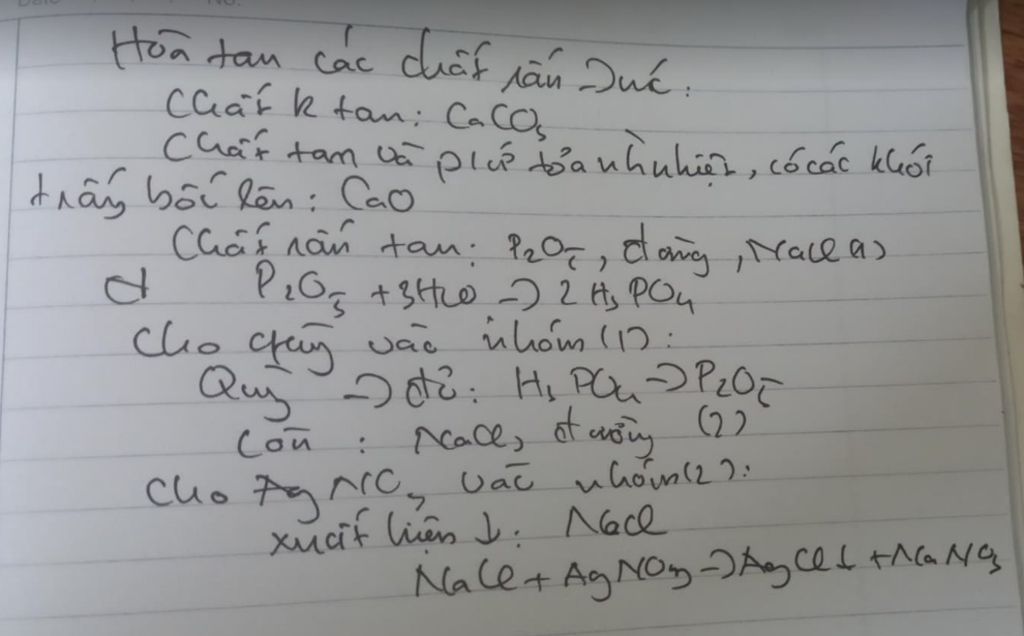 Hoà tan các chất rắn trước:
Chất k tan: CaCO₃
Chất tan và p/ứ tỏa nhiệt, có các khói
trắng bốc lên: CaO
Chất rắn tan: P₂O₅, đường, NaCl (1)
P₂O₅ + 3H₂O → 2H₃PO₄
Cho quỳ vào nhóm (1):
Quỳ → đỏ: H₃PO₄ → P₂O₅
Còn : NaCl, đường (2)
Cho AgNO₃ vào nhóm (2):
xuất hiện ↓: NaCl
NaCl + AgNO₃ → AgCl↓ + NaNO₃